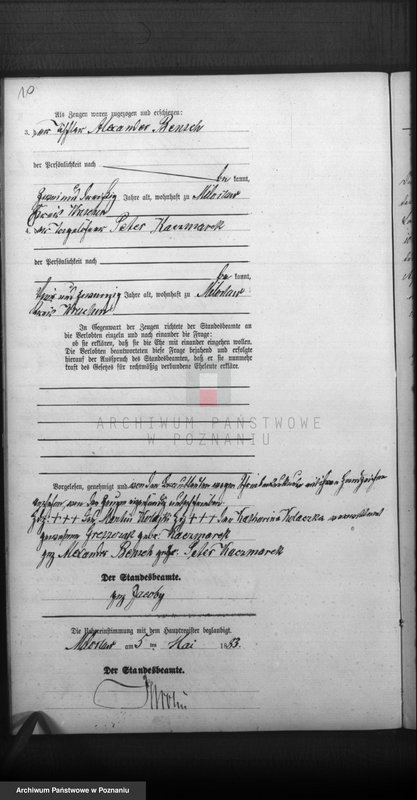 10
Als Zeugen waren zugezogen und erschienen:
3. der Töpfer Alexander Bensch
der Persönlichkeit nach
be kannt,
zwei und dreißig Jahre alt, wohnhaft zu Miloslaw
Kreis Wreschen
4. der Tagelöhner Peter Kaczmarek
der Persönlichkeit nach
be kannt,
und zwanzig Jahre alt, wohnhaft zu Miloslaw
Kreis Wreschen
In Gegenwart der Zeugen richtete der Standesbeamte an
die Verlobten einzeln und nach einander die Frage:
ob sie erklären, daß sie die Ehe mit einander eingehen wollen.
Die Verlobten beantworteten diese Frage bejahend und erfolgte
hierauf der Ausspruch des Standesbeamten, daß er sie nunmehr
kraft des Gesetzes für rechtmäßig verbundene Eheleute erkläre.
ARCHIWUM PAŃSTWOWE
W POZNANIU
Vorgelesen, genehmigt und von den Brautleuten wegen mit ihren Handzeichen
versehen, von den Zeugen eigenhändig unterschrieben
+++ des Martin +++ der Katharina
geborene
gez Alexander Bensch gez. Peter Kaczmarek
Der Standesbeamte.
gez Jacoby
Die Übereinstimmung mit dem Hauptregister beglaubigt.
Miloslaw am 5 ten Mai 1883.
Der Standesbeamte.
Archiwum Państwowe w Poznaniu